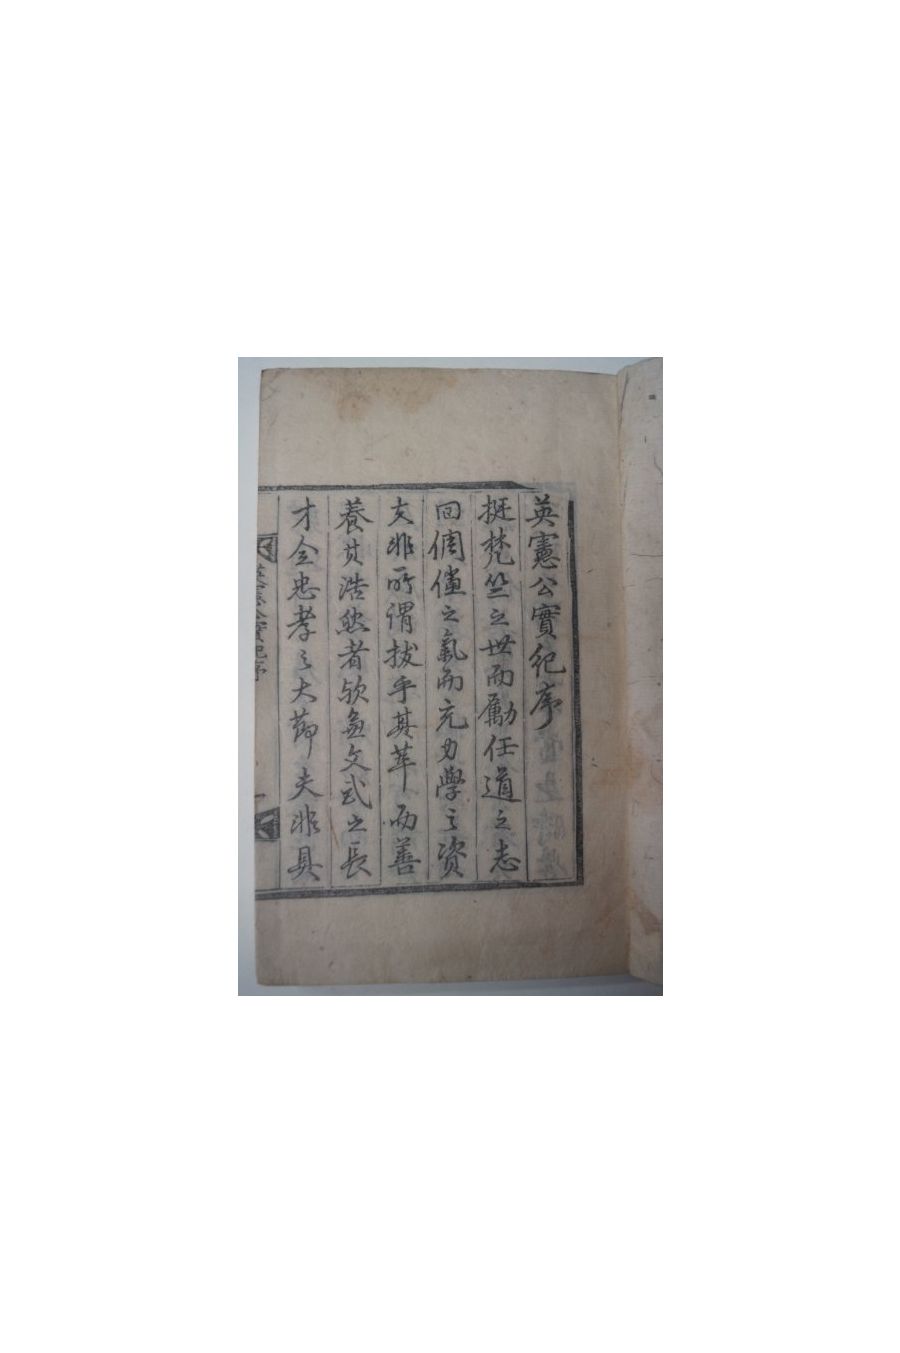 英憲公實紀序
挺梵竺之世而勵任道之志
回倜儻之氣而充力學之資
夫非所謂拔乎其萃而善
養其浩然者歟兼文武之長
才全忠孝之大節夫非具
英憲公實紀序
一